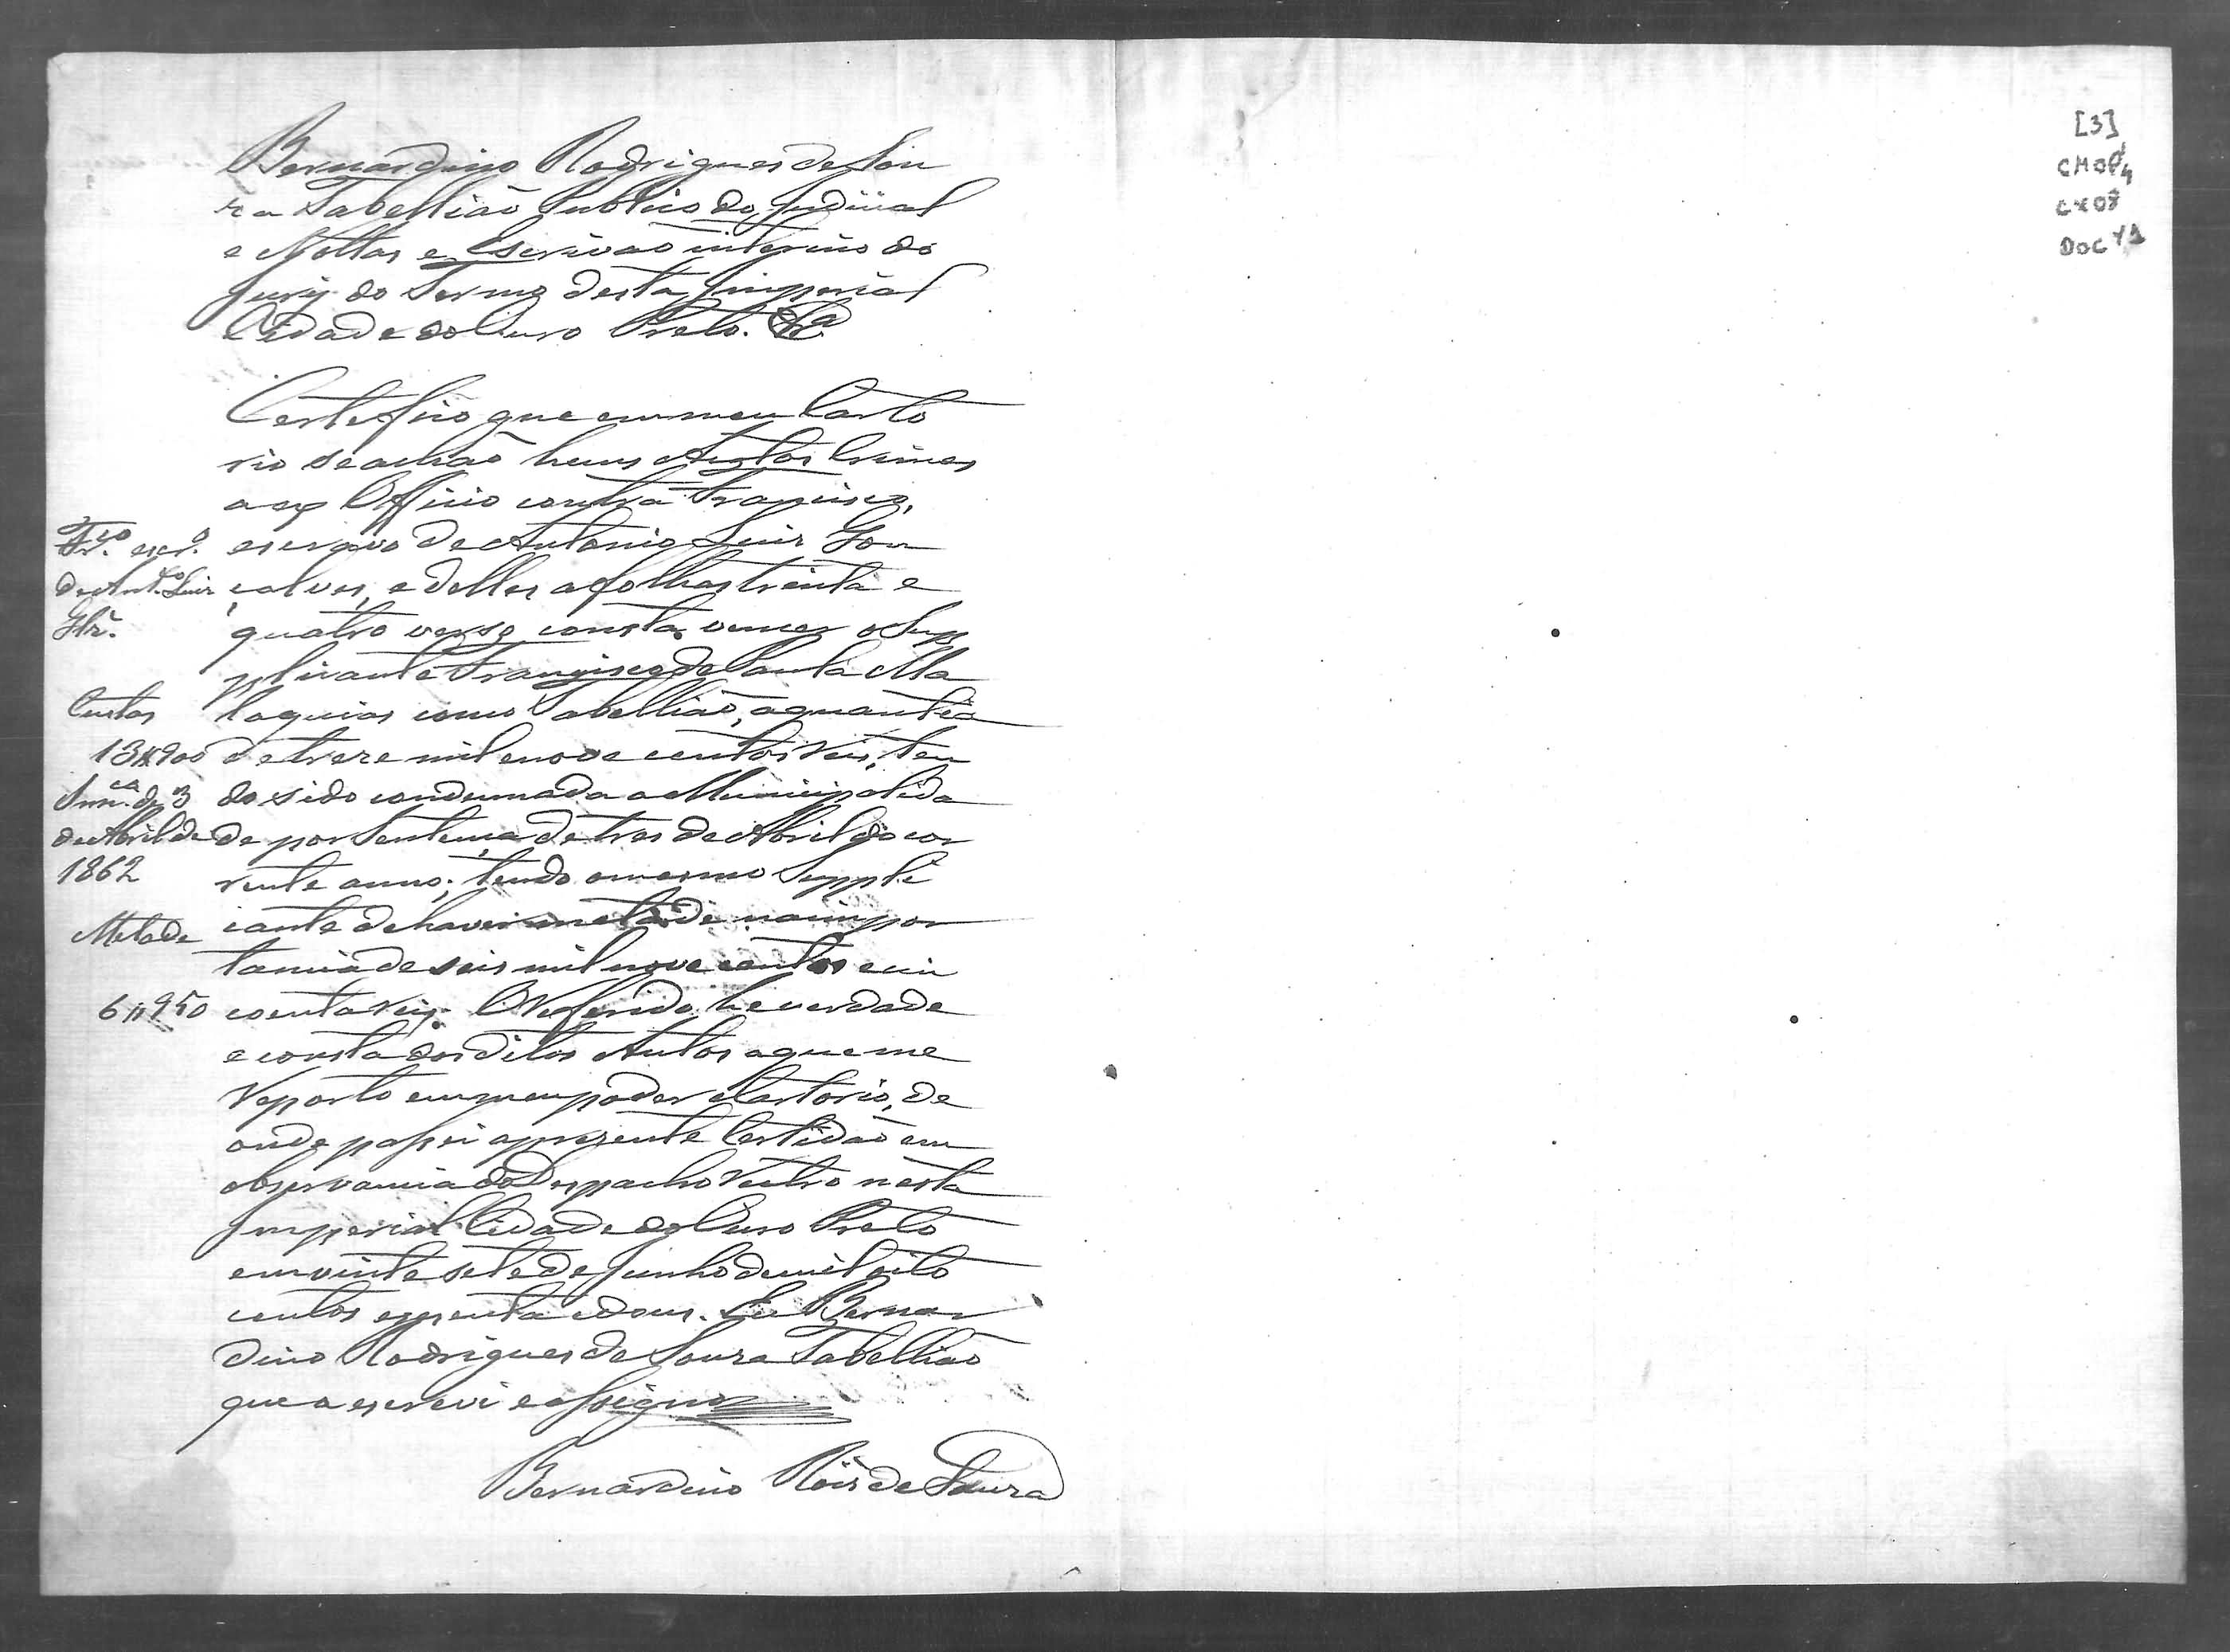 Bernardino Rodrigues de Sou
za Tabellião Publico do Judicial
e Nottas e Escrivao interino do
Jury do Termo desta Imperial
Cidade do Ouro Preto. &ª
Certefico que em meu Carto
rio se achaõ huns Autos Crimes
a ex Officio contra Francisco,
escravo de Antonio Luiz Gon
calves, e delles a folhas trinta e
quatro verso consta vencer o Sup
plicante Francisco de Paula Ma
laquias como Tabelliaõ, a quantia
de treze mil e nove centos reis, ten
do sido condemnada a Municipalida
de por Sentença de tres de Abril do cor
rente anno; tendo o mesmo Suppli
cante de haver metade na impor
tancia de seis mil nove centos e cin
coenta reis. O Referido he verdade
e consta dos ditos Autos a que me
reporto em meu poder e Cartorio, de
onde passei a prezente Certidaõ em
observancia do Despacho retro nesta
Imperial Cidade do Ouro Preto
em vinte sete de Junho de mil oito
centos essenta e dous. Eu Bernar
dino Rodrigues de Souza Tabelliaõ
que o escrevi e assigno
Bernardino Roiz de Souza
Fr.co escr.o
de Ant.o Luiz
Glz.
Custas
13#900
Snn.ca de 3
de Abril de
1862
Metade
6#950
[3]
CMOP
CX07
DOC